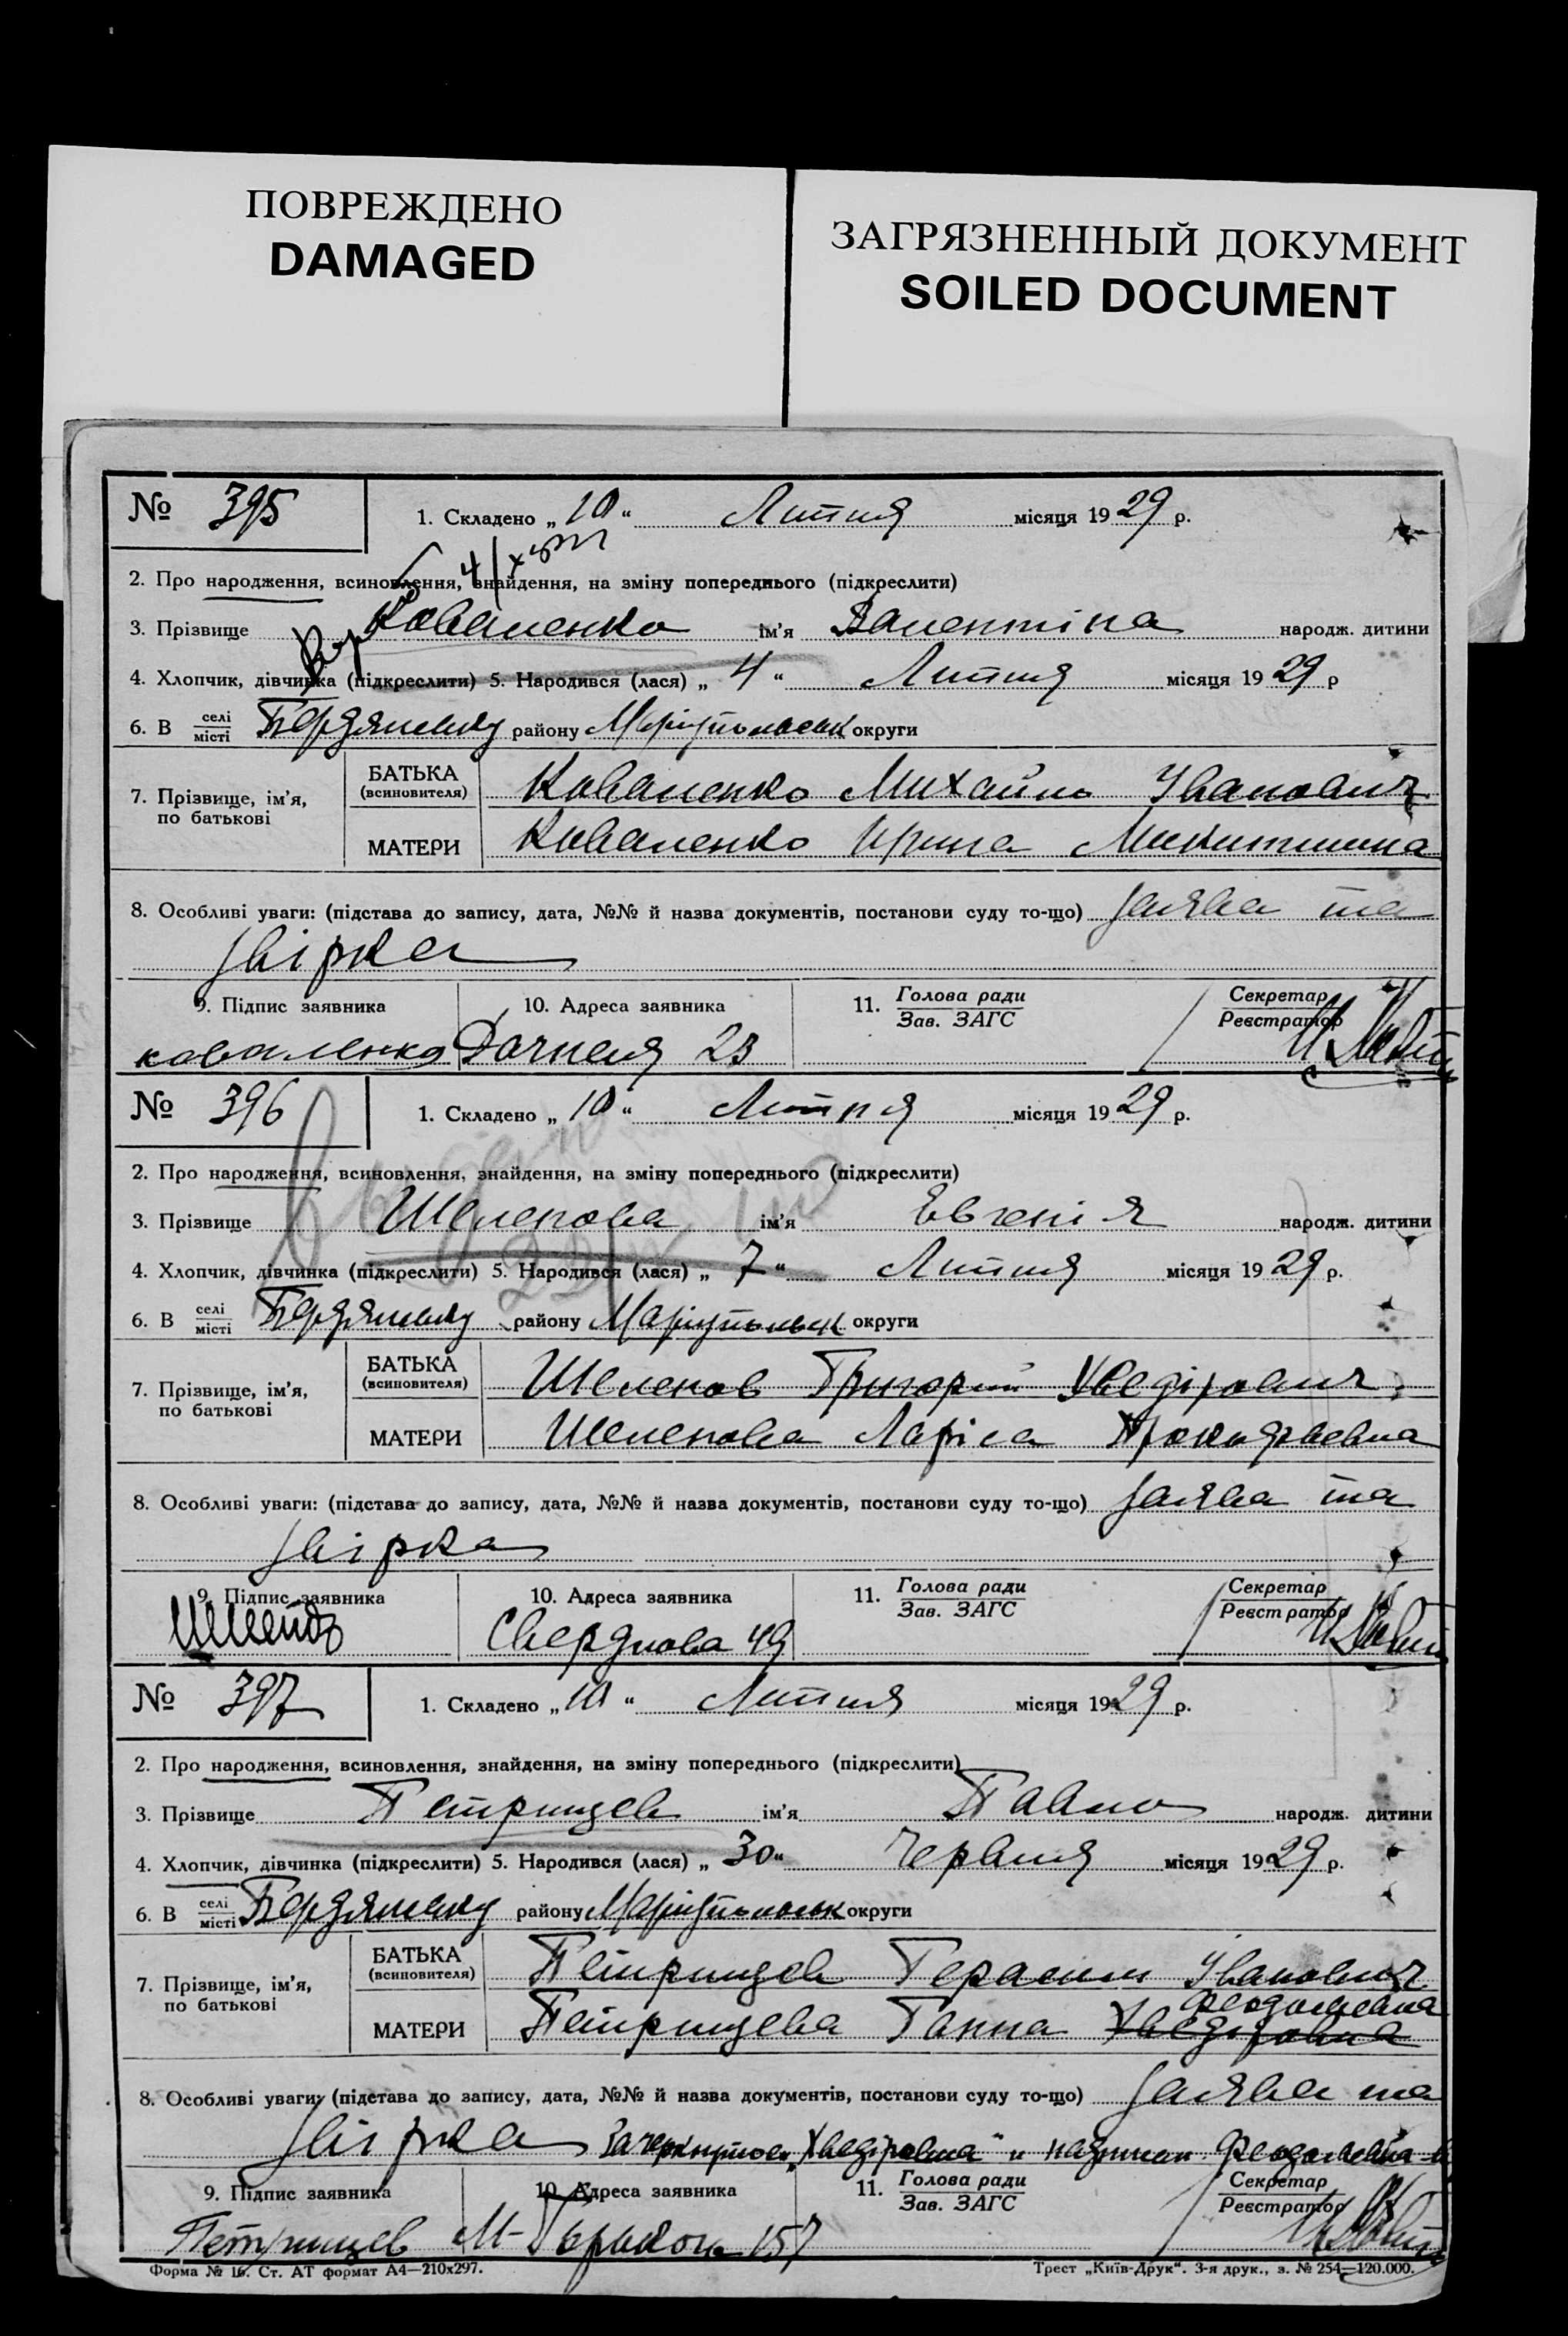 ПОВРЕЖДЕНО
DAMAGED
ЗАГРЯЗНЕННЫЙ ДОКУМЕНТ
SOILED DOCUMENT
№ 395
1. Складено „ 10 “ Липня місяця 1929 р.
2. Про народження, всиновлення, знайдення, на зміну попереднього (підкреслити)
3. Прізвище Коваленко ім'я Валентіна народж. дитини
4. Хлопчик, дівчинка (підкреслити) 5. Народився (лася) „ 4 “ Липня місяця 1929 р
6. В селі місті Бердянську району Маріупольськ округи
7. Прізвище, ім'я, по батькові
БАТЬКА (всиновителя) Коваленко Михайло Іванович
МАТЕРИ Коваленко Ирина Микитишна
8. Особливі уваги: (підстава до запису, дата, №№ й назва документів, постанови суду то-що) заява та
звірка
9. Підпис заявника 10. Адреса заявника 11. Голова ради Зав. ЗАГС Секретар Реєстратор
коваленко Дачная 23
№ 396
1. Складено „ 10 “ Липня місяця 1929 р.
2. Про народження, всиновлення, знайдення, на зміну попереднього (підкреслити)
3. Прізвище Шелепова ім'я Евгенія народж. дитини
4. Хлопчик, дівчинка (підкреслити) 5. Народився (лася) „ 7 “ Липня місяця 1929 р.
6. В селі місті Бердянську району Маріупольськ округи
7. Прізвище, ім'я, по батькові
БАТЬКА (всиновителя) Шелепов Григорий Хведірович
МАТЕРИ Шелепова Ларіса Прокофьевна
8. Особливі уваги: (підстава до запису, дата, №№ й назва документів, постанови суду то-що) заява та
звірка
9. Підпис заявника 10. Адреса заявника 11. Голова ради Зав. ЗАГС Секретар Реєстратор
Свердлова 49
№ 397
1. Складено „ 10 “ Липня місяця 1929 р.
2. Про народження, всиновлення, знайдення, на зміну попереднього (підкреслити)
3. Прізвище Петрищев ім'я Павло народж. дитини
4. Хлопчик, дівчинка (підкреслити) 5. Народився (лася) „ 30 “ Червня місяця 1929 р.
6. В селі місті Бердянську району Маріупольськ округи
7. Прізвище, ім'я, по батькові
БАТЬКА (всиновителя) Петрищев Герасим Іванович
МАТЕРИ Петрищева Ганна Хведіровна
8. Особливі уваги: (підстава до запису, дата, №№ й назва документів, постанови суду то-що) заява та
звірка Зачеркнутое „Хведіровна“ и
9. Підпис заявника 10. Адреса заявника 11. Голова ради Зав. ЗАГС Секретар Реєстратор
Петрищев М-Горького 157
Форма № 16. Ст. АТ формат А4—210х297. Трест „Київ-Друк“. 3-я друк., з. № 254—120.000.